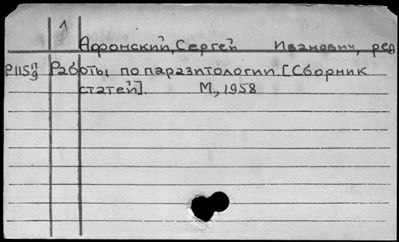 1
Афонский, Сергей Иванович, ред
Р115 17/9 Работы по паразитологии. [Сборник
статей]. М., 1958